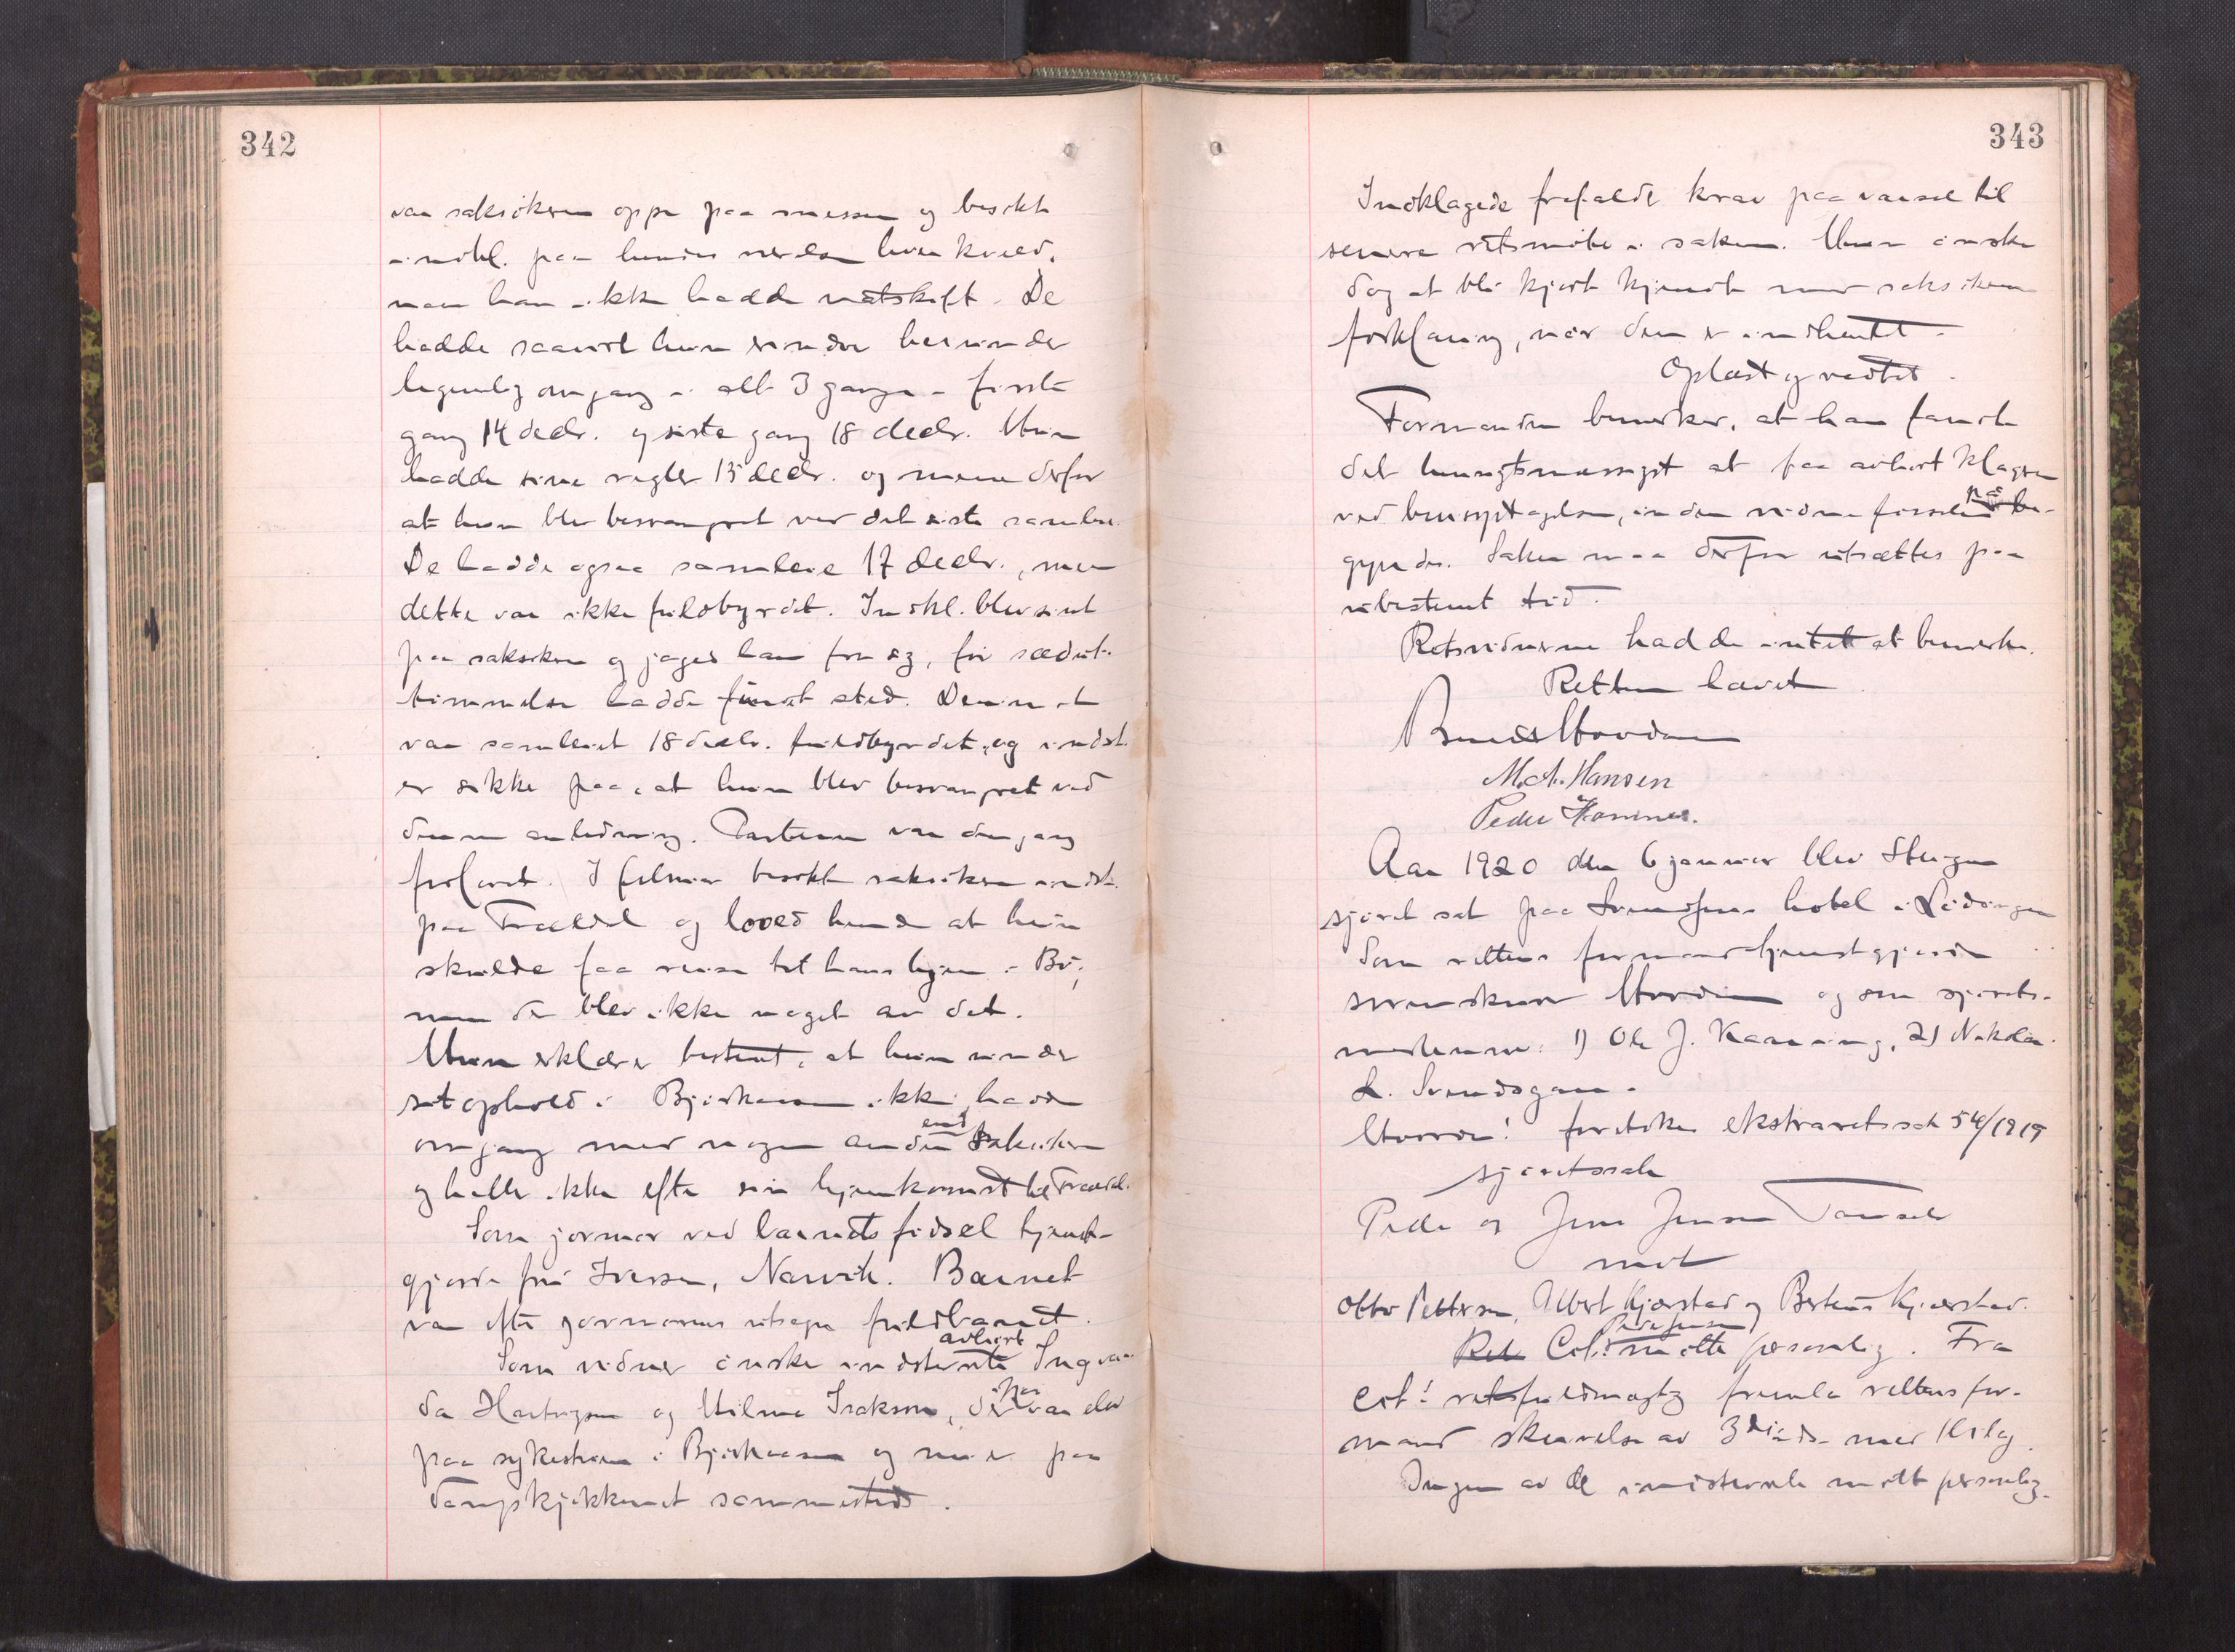 342
var saksøkeren oppe paa messen og besøkte
indkl. paa hendes værelse hver kveld,
naar han ikke hadde natskift. De
hadde saavidt hun erindrer herunder
legemlig omgang i alt 3 ganger - første
gang 14 decbr. og siste gang 18 decbr. Hun
hadde sine regler 15 decbr. og mener derfor
at hun blev besvangret ved det siste samleie.
De hadde ogsaa samleie 17 decbr., men
dette var ikke fuldbyrdet. Indkl. blev sint
paa saksøkeren og jaget ham fra sig, før sæduttømmelse
hadde fundet sted. Derimot
var samleiet 18 decbr. fuldbyrdet, og indst.
er sikker paa, at hun blev besvangret ved
denne anledning. Parterne var dengang
forlovet. I februar besøkte saksøkeren indst.
paa Trældal og loved hende at hun
skulde faa reise til hans hjem i Bø,
men der blev ikke noget av det.
Hun erklærer bestemt, at hun under
sit ophold i Bjørkaasen ikke hadde
omgang med nogen anden end saksøkeren
og heller ikke efter sin hjemkomst til Trældal.
Som jormor ved barnets fødsel tjenst-
gjorde fru Iversen, Narvik. Barnet
var efter jormorens utsagn fuldbaaret.
Som vidner ønsker indstevnte avhørt Ingvar-
da Hartvigsen og Hilma Isaksen, der var elev
paa sykestuen i Bjørkaasen og nu er paa
dampkjøkkenet sammesteds.
343
Indklagede frafaldt krav paa varsel til
senere retsmøte i saken. Hun ønsker
dog at bli gjort kjendt med saksøkerens
forklaring, naar den er indhentet.
Oplæst og vedtat.
Formanden bemerker, at han fandt
det hensigtsmæssigst at faa avhørt klageren
ved bevisoptagelse, inden vidneførselen paabe-
gyndes. Saken maa derfor utsættes paa
ubestemt tid.
Retsvidnerne hadde intet at bemerke.
Retten hævet
M. A. Hansen
Peder Hammer.
Aar 1920 den 6 januar blev Steigen
sjøret sat paa Svendsens hotel i Lødingen
Som rettens formand tjenstgjorde
sorenskriver Hovden og som sjørets-
medlemmer: 1) Ole J. Kanning, 2) Nikolai
L. Svendsgaa.
Hovden! foretokes ekstraretssak 54/1919
sjøretssak
Peder og Jens Jensen
mot
Otto Pettersen, Albert Kjærstad og Bertens Kjærstad.
Ret Cit. Peder Jensen møtte personlig. Fra
Cit! retsfuldmægtig fremla rettens for-
mand skrivelse av 3 ds. med bilag.
Ingen av de indstevnte møtt personlig.